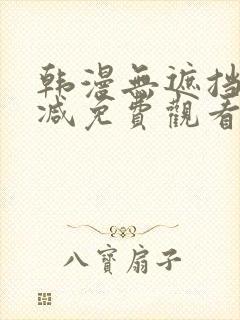 韩漫無遮挡
减免費觀看
八寶扇子